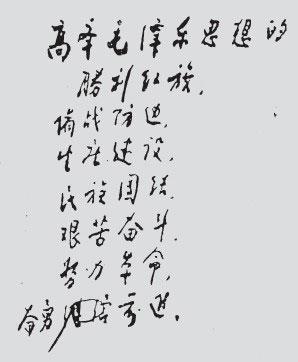 高举毛泽东思想的
勝利红旗,
備战防边,
生产建设,
民族团结,
艰苦奋斗,
努力革命,
奋勇